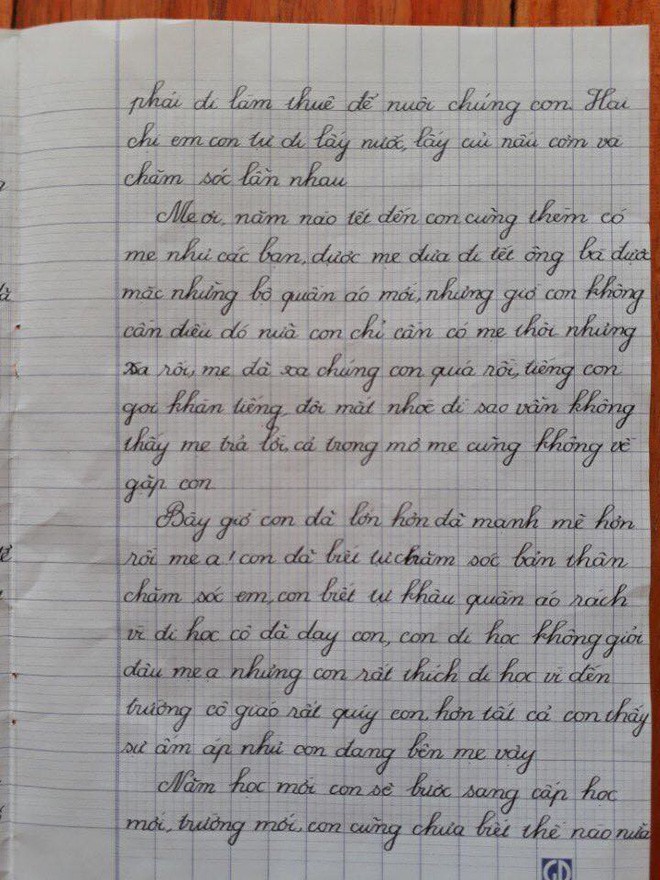 phải đi làm thuê để nuôi chúng con. Hai
chị em con tự đi lấy nước, lấy củi nấu cơm và
chăm sóc lẫn nhau
Mẹ ơi, năm nào tết đến con cũng thèm có
mẹ như các bạn, được mẹ đưa đi tết ông bà được
mặc những bộ quần áo mới, nhưng giờ con không
cần điều đó nữa con chỉ cần có mẹ thôi nhưng
xa rồi, mẹ đã xa chúng con quá rồi, tiếng con
gọi khản tiếng, đôi mắt nhoè đi sao vẫn không
thấy mẹ trả lời, cả trong mơ mẹ cũng không về
gặp con
Bây giờ con đã lớn hơn đã mạnh mẽ hơn
rồi mẹ ạ! con đã biết tự chăm sóc bản thân
chăm sóc em, con biết tự khâu quần áo rách
vì đi học cô đã dạy con, con đi học không giỏi
đâu mẹ ạ nhưng con rất thích đi học vì đến
trường cô giáo rất quý con, hơn tất cả con thấy
sự ấm áp như con đang bên mẹ vậy
Năm học mới con sẽ bước sang cấp học
mới, trường mới, con cũng chưa biết thế nào nữa
GD